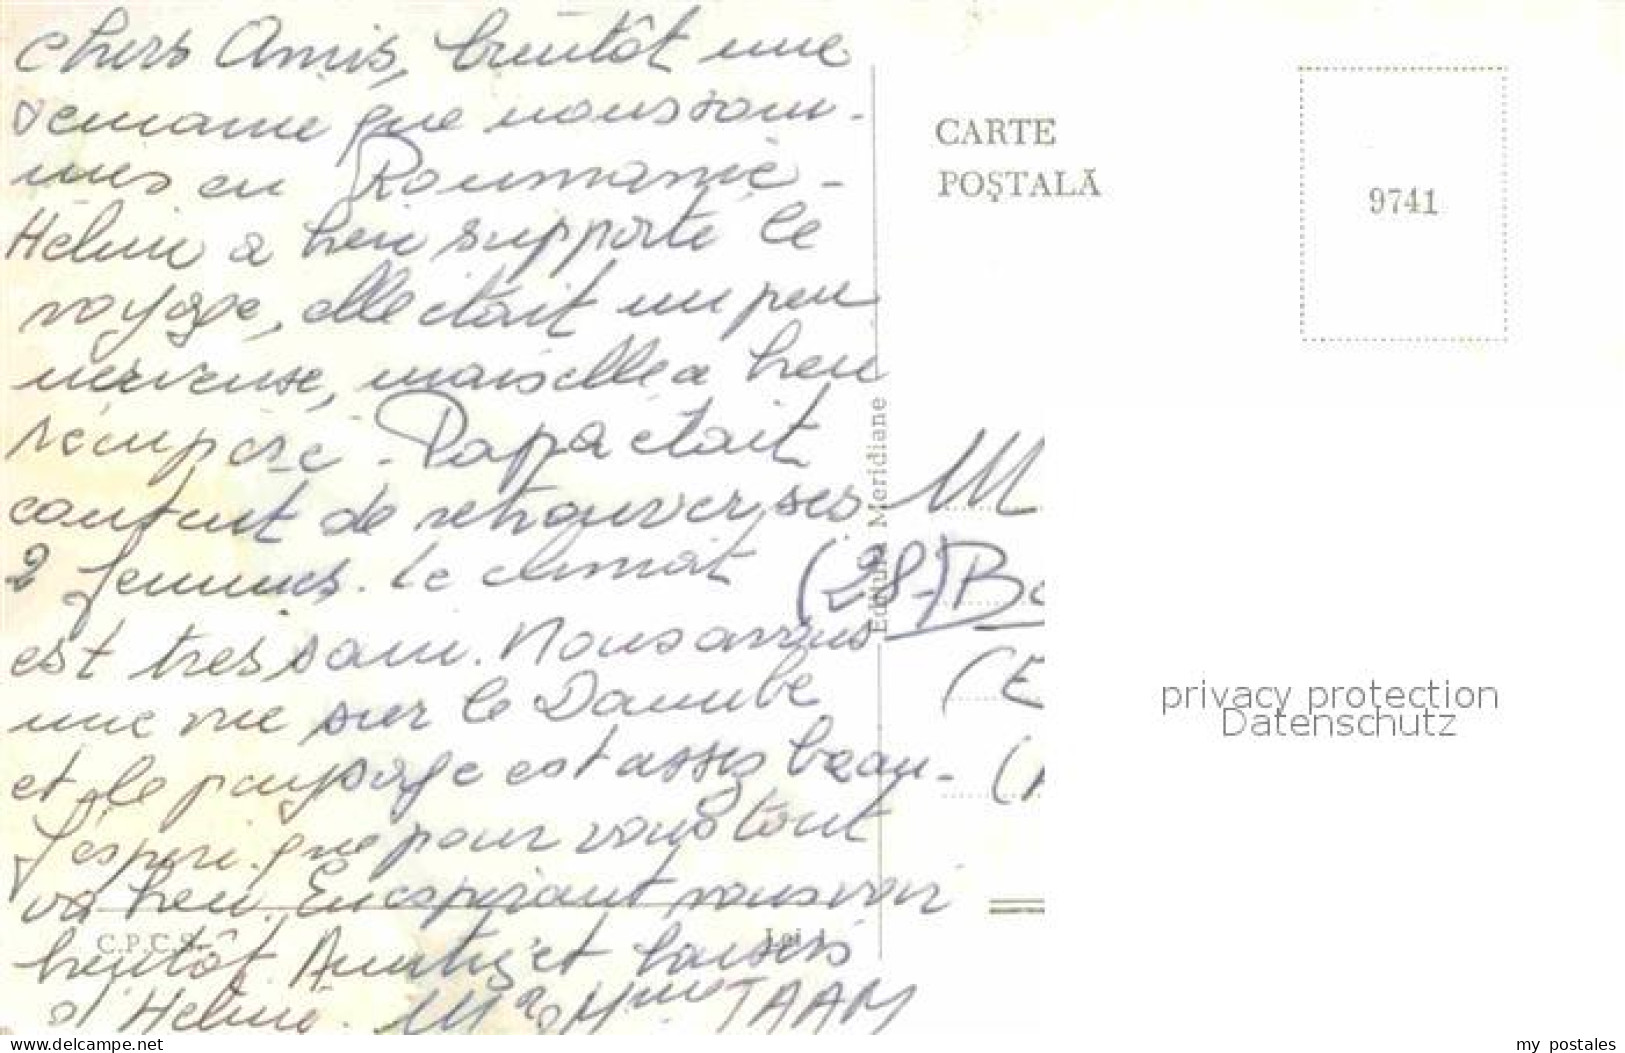 Chers Amis, bientôt une
semaine que nous som-
mes en Roumanie -
Hélène a bien supporté le
voyage, elle était un peu
nerveuse, mais elle a bien
récupéré - Papa était
content de retrouver ses
2 femmes. Le climat
est tres sain. Nous avons
une vue sur le Danube
et le paysage est assez beau -
J'espère que pour vous tout
va bien. En espérant vous voir
bientôt. Amitiés et baisers
d'Hélène. Mr & Mme TAAM
C.P.C.S.
Lei 1
Editura Meridiane
CARTE
POŞTALĂ
9741
M
(28-) Bo
(E
(
privacy protection
Datenschutz
www.delcampe.net
my_postales